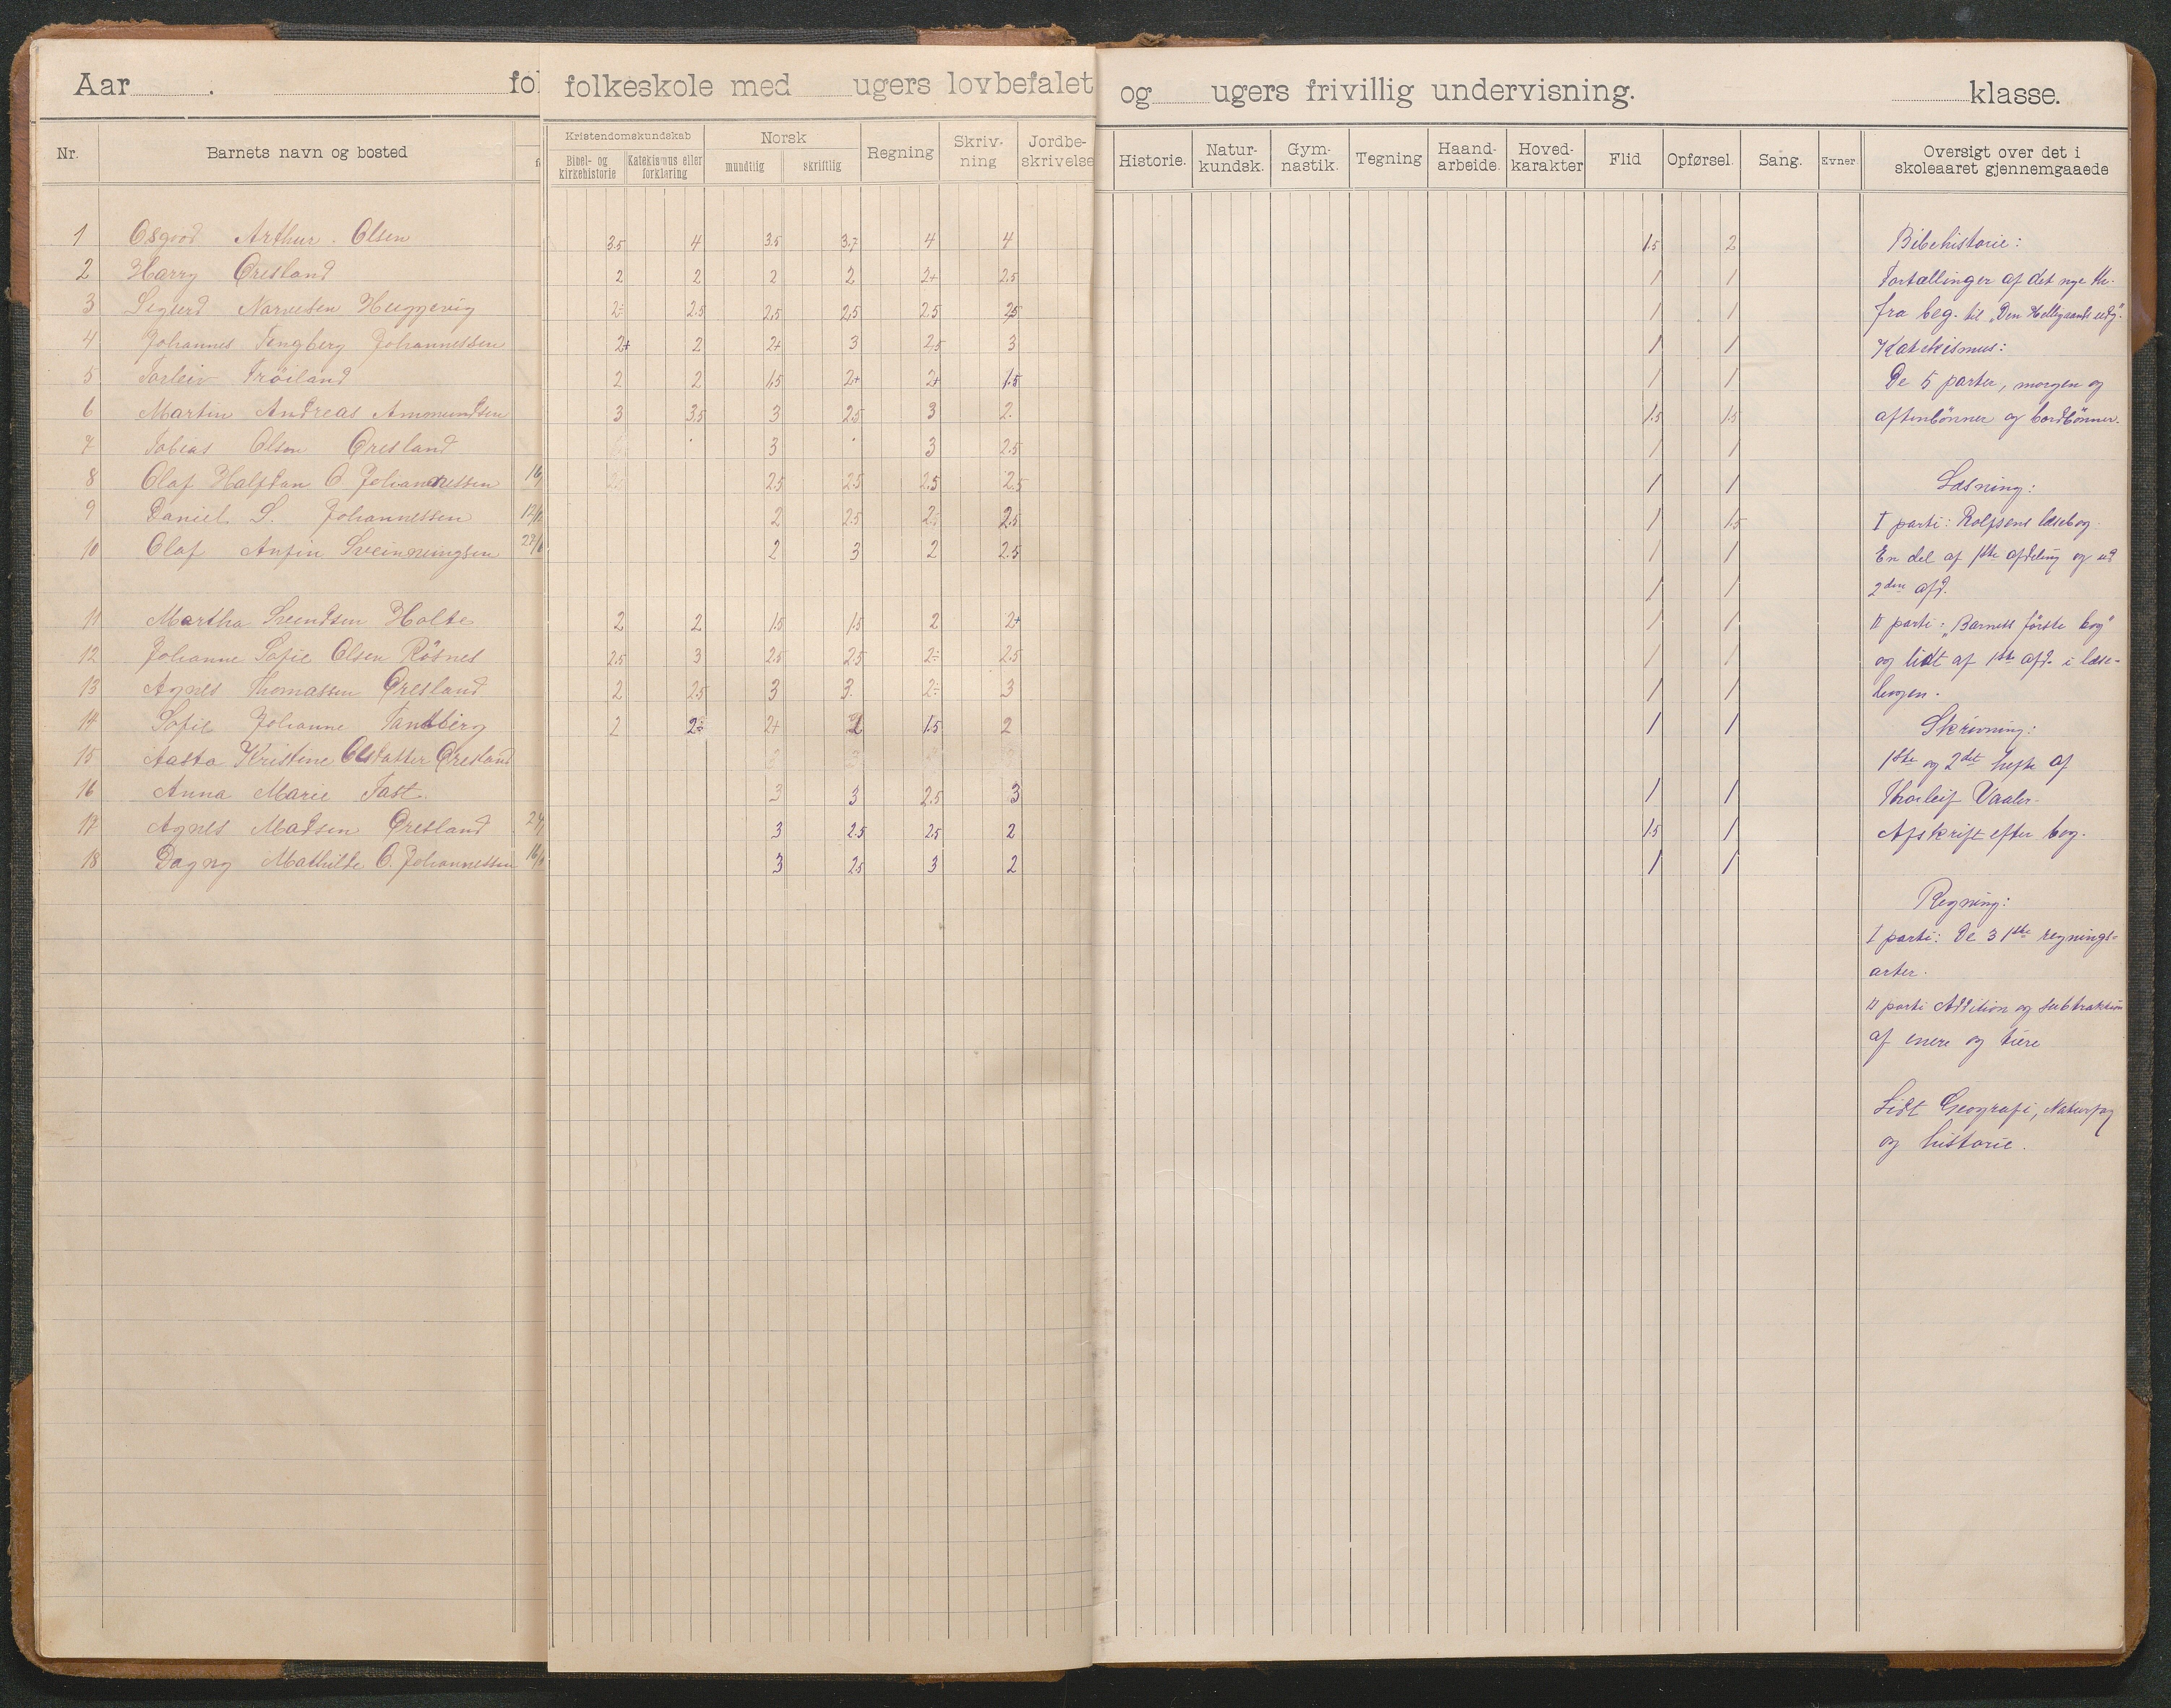 Aar . fol folkeskole med ugers lovbefalet og ugers frivillig undervisning. klasse.
Nr. Barnets navn og bosted
Kristendomskundskab Norsk Regning Skriv-ning Jordbe-skrivelse Historie. Natur-kundsk. Gym-nastik. Tegning Haand-arbeide. Hoved-karakter Flid Opførsel. Sang. Evner Oversigt over det i skoleaaret gjennemgaaede
Bibel- og kirkehistorie Katekismus eller forklaring mundtlig skriftlig
1 Osgood Arthur Olsen 3.5 4 3.5 3.7 4 4 1.5 2
2 Harry Øresland 2 2 2 2 2+ 2.5 1 1
3 Sigurd Narvesen Heggevig 2÷ 2.5 2.5 2.5 2.5 2.5 1 1
4 Johannes Tengberg Johannessen 2+ 2 2+ 3 2.5 3 1 1
5 Torleiv Trøiland 2 2 1.5 2+ 2+ 1.5 1 1
6 Martin Andreas Amonundsen 3 3.5 3 2.5 3 2. 1.5 1.5
7 Tobias Olsen Øresland 3 3 2.5 1 1
8 Olaf Halfdan O. Johannessen 16/ 2.5 2.5 2.5 2.5 1 1
9 Daniel S. Johannessen 12/ 2 2.5 2÷ 2.5 1 1.5
10 Olaf Anfin Sveinnungsen 2 3 2 2.5 1 1
1 1
11 Martha Svendsen Holte 2 2 1.5 1.5 2 2+ 1 1
12 Johanne Sofie Olsen Røsnes 2.5 3 2.5 2.5 2÷ 2.5 1 1
13 Agnes Thomassen Øresland 2 2.5 3 3. 2÷ 3 1 1
14 Sofie Johanne Tandberg 2 2÷ 2+ 2 1.5 2 1 1
15 Aasta Kristine Olsdatter Øresland
16 Anna Marie Fast 3 3 2.5 3 1 1
17 Agnes Madsen Øresland 3 2.5 2.5 2 1.5 1
18 Dagny Mathilde O. Johannessen 16/ 3 2.5 3 2 1 1
Bibehistorie:
Fortællinger af det nye th.
fra beg. til „Den Helligaands udg".
Katekismus:
De 5 parter, morgen og
aftenbønner og bordbønner.
Læsning:
I parti: Rolfsens læsebog.
En del af 1ste afdeling og
2den afd.
II parti: „Barnets første bog"
og lidt af 1ste afd. i læse-
bogen.
Skrivning:
1ste og 2det hefte af
Thorleif Vaaler.
Afskrift efter bog.
Regning:
I parti: De 3 1ste regnings-
arter.
II parti Addition og subtraktion
af enere og tiere
Lidt Geografi, Naturfag
og historie.